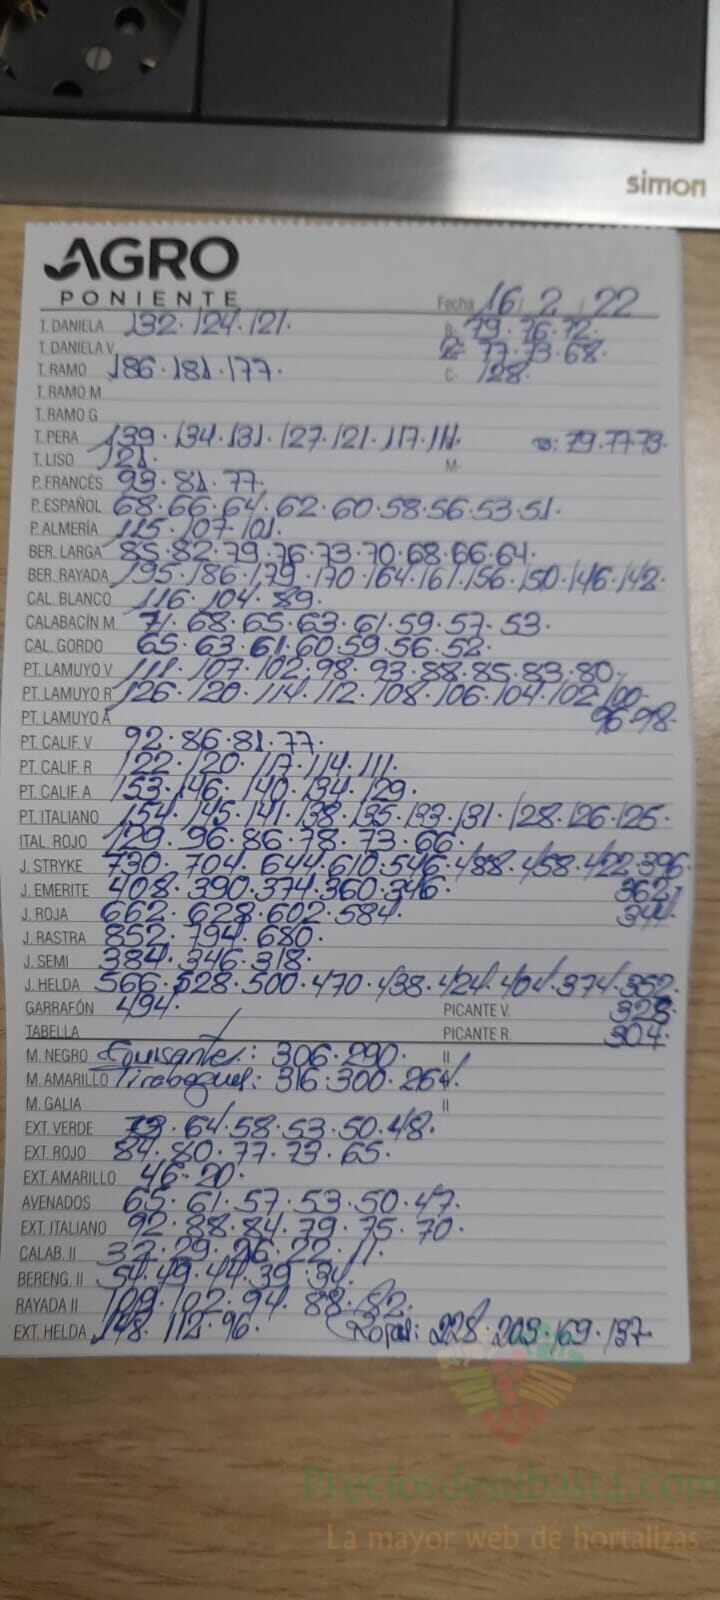 simon
AGRO
PONIENTE
Fecha 16 / 2 / 22
T. DANIELA 132. 124. 121. B- 79. 76. 72.
T. DANELA V. 77. 73. 68.
T. RAMO 186. 181. 177. C- 128.
T. RAMO M
T. RAMO G
T. PERA 139. 134. 131. 127. 121. 117. 111. B: 79. 77. 73.
T. LISO 121. M-
P. FRANCÉS 93. 81. 77.
P. ESPAÑOL 68. 66. 64. 62. 60. 58. 56. 53. 51.
P. ALMERÍA 115. 107. 101.
BER. LARGA 85. 82. 79. 76. 73. 70. 68. 66. 64.
BER. RAYADA 195. 186. 179. 170. 164. 161. 156. 150. 146. 142.
CAL. BLANCO 116. 104. 89.
CALABACÍN M 71. 68. 65. 63. 61. 59. 57. 53.
CAL. GORDO 65. 63. 61. 60. 59. 56. 52.
PT. LAMUYO V 111. 107. 102. 98. 93. 88. 85. 83. 80.
PT. LAMUYO R 126. 120. 114. 112. 108. 106. 104. 102. 100.
PT. LAMUYO A 96. 98.
PT. CALIF. V 92. 86. 81. 77.
PT. CALIF. R 122. 120. 117. 114. 111.
PT. CALIF. A 153. 146. 140. 134. 129.
PT. ITALIANO 154. 145. 141. 138. 135. 133. 131. 128. 126. 125.
ITAL. ROJO 129. 96. 86. 78. 73. 66.
J. STRYKE 730. 704. 644. 610. 546. 488. 458. 422. 396.
J. EMERITE 408. 390. 374. 360. 346. 362.
J. ROJA 662. 628. 602. 584. 344.
J. RASTRA 852. 794. 680.
J. SEMI 384. 346. 318.
J. HELDA 566. 528. 500. 470. 438. 424. 404. 374. 352.
GARRAFÓN 494. PICANTE V. 328.
TABELLA PICANTE R. 304.
M. NEGRO Guisante: 306. 290. II
M. AMARILLO Tirabeques: 316. 300. 264. II
M. GALIA II
EXT. VERDE 73. 64. 58. 53. 50. 48.
EXT. ROJO 84. 80. 77. 73. 65.
EXT. AMARILLO 46. 20.
AVENADOS 65. 61. 57. 53. 50. 47.
EXT. ITALIANO 92. 88. 84. 79. 75. 70.
CALAB. II 32. 29. 26. 22. 11.
BERENG. II 54. 49. 44. 39. 34.
RAYADA II 109. 102. 94. 88. 82.
EXT. HELDA 148. 112. 96. Rojas: 228. 203. 169. 137.
Preciosdesubasta.com
La mayor web de hortalizas